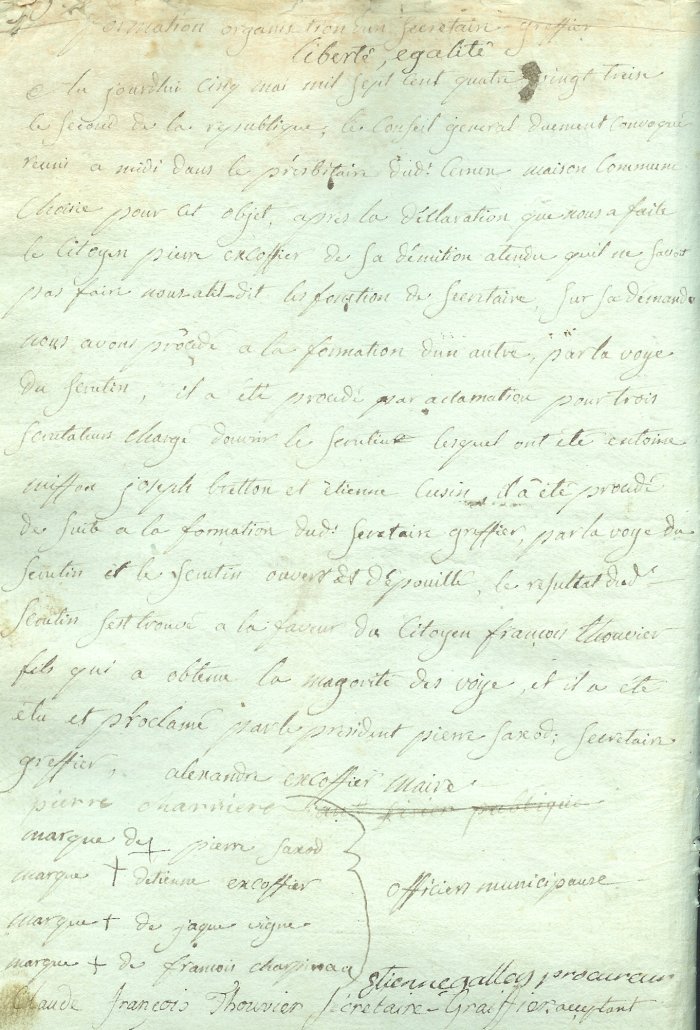 formation organisation d'un secretaire greffier
liberté, egalité
Ce jourdhui cinq mai mil sept cent quatre vingt treise
le second de la republique, le Conseil general duement convoqué
reuni a midi dans le présbitaire dud. maison Commune
Choisie pour cet objet, aprés la déclaration que nous a faite
le Citoyen pierre excoffier de sa démition atendu quil ne savoit
pas faire nous at-il-dit les fonction de Secretaire, Sur sa démande
nous avons procédé a la formation dun autre, par la voye
du Scrutin, il a été procedé par aclamation pour trois
Scrutateurs chargé douvrir le Scrutin lesquel ont été entoine
miffon joseph bretton et étienne Cusin, il a été procedé
de suite a la formation dud. Secretaire greffier, par la voye du
Scrutin et le Scrutin ouvert et dépouillé, le resultat dud.
Scrutin sest trouvé a la faveur du Citoyen françois Thouvier
fils qui a obtenu la magorité des voye, et il a été
élu et proclamé par le president pierre Saxod; Secretaire
greffier, alexandre excoffier maire
pierre charriere
marque de + pierre saxod
marque + détienne excoffier
officiers municipause
marque + de jaque vigne
marque + de francois
etienne gallay procureur
Claude François Thouvier Sécretaire-Graiffier acceptant